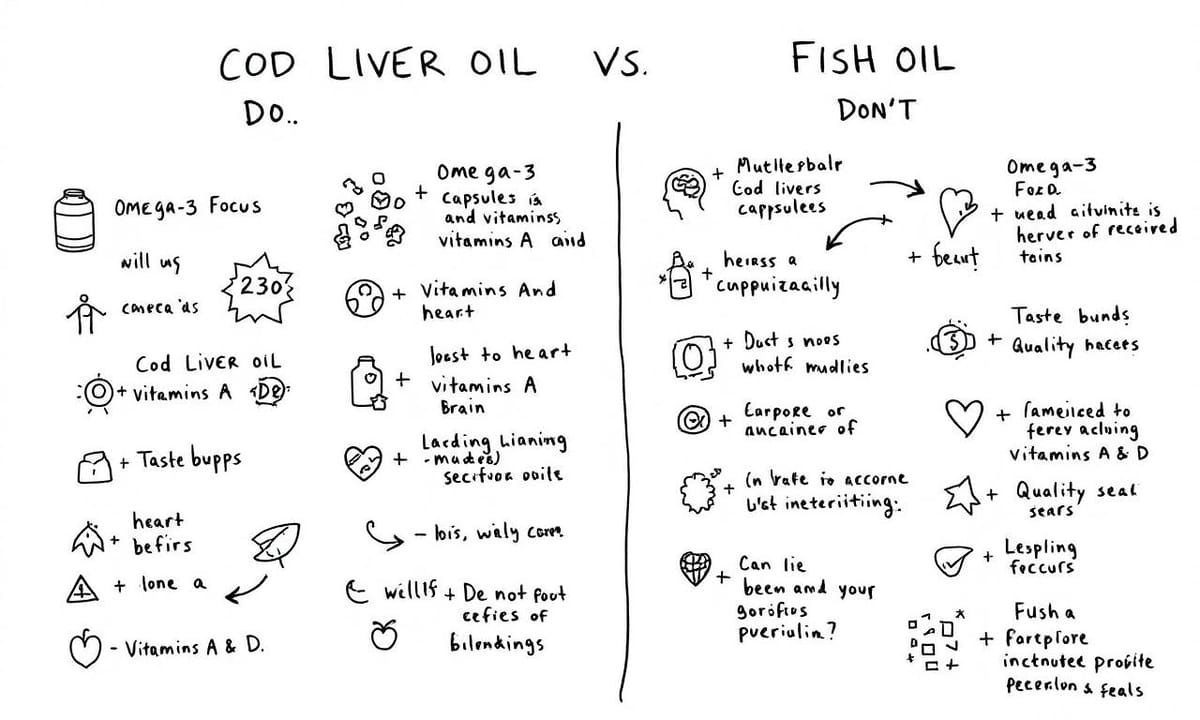 COD LIVER OIL VS. FISH OIL
DO..
DON'T
OMEGA-3 FOCUS
will us
230
cmeca'ds
Cod LIVER OIL
+ vitamins A
+ Taste bupps
+ heart
befirs
+ lone a
- Vitamins A & D.
Omega-3
+ capsules is
and vitaminss,
vitamins A aiid
+ Vitamins And
heart
joest to heart
+ vitamins A
Brain
Lacding Lianing
+ -mudes)
secifuon ouile
- lois, waly
willIf + De not foot
cefies of
bilendkings
+ Mutllesbalr
God livers
cappsulees
heirss a
+ cuppuizagilly
+ Duct s noos
whotk mudlies
+ Earpore or
ancainer of
+ in brate is accorne
b'st ineteriitiing:
Can lie
+ been and your
gorifius
pveriulin?
Omega-3
+ uead ailvinite is
herver of received
toins
+ beart
Taste bunds
+ Quality hacees
+ fameilced to
ferev acluing
Vitamins A & D
+ Quality seal
sears
+ Lespling
foccurs
Fush a
+ Foreplore
inctnutee profite
& feals